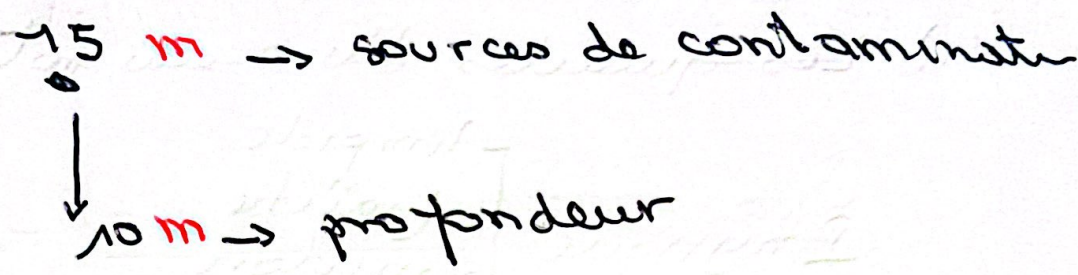 15 m → sources de contaminat
10 m → profondeur